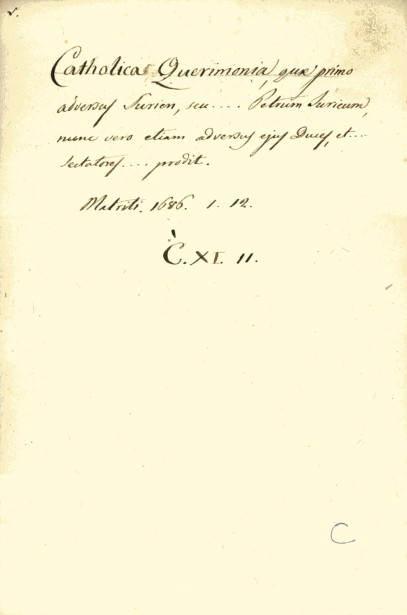 Catholica Querimonia, quæ primo
adversus Surien, seu .... Petrum Juricum,
nunc vero etiam adversus ejus Duces, et ...
sectatores .... prodit.
Matriti. 1686. 1. 12.
C. XI. 11.
C